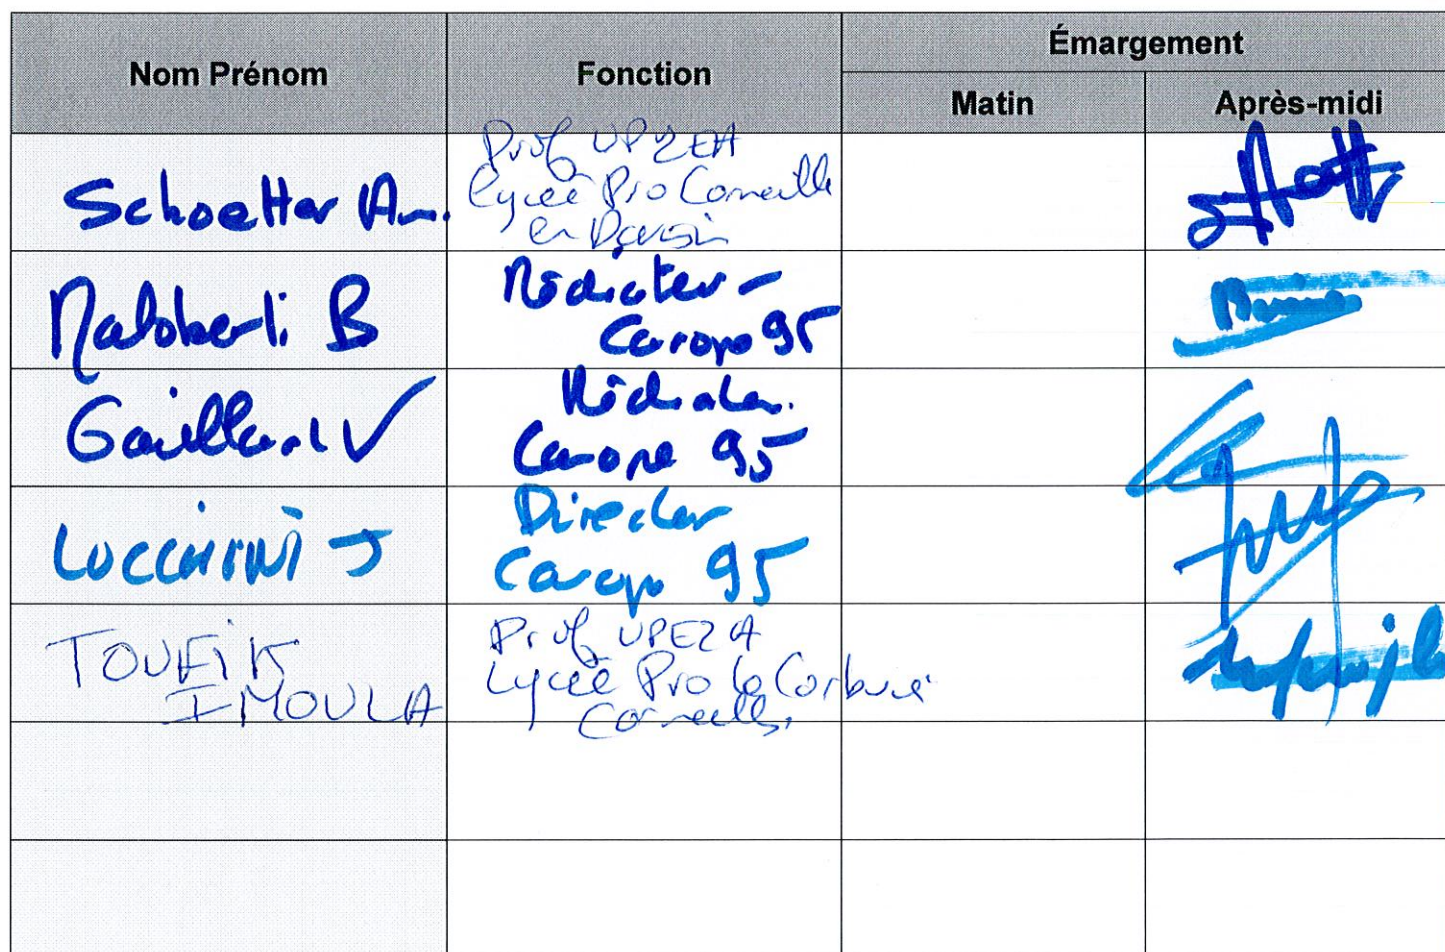 Nom Prénom
Fonction
Émargement
Matin
Après-midi
Schoetter
Prof UP2EA
Lycée Pro Corneille
en Parisis
Maloberti B
Médiateur -
Canope 95
Gaillard V
Médiateur
Canope 95
LUCCHINI J
Director
Canope 95
TOUFIK
IMOULA
Prof UPE2A
Lycée Pro le Corbusi
Corneilles